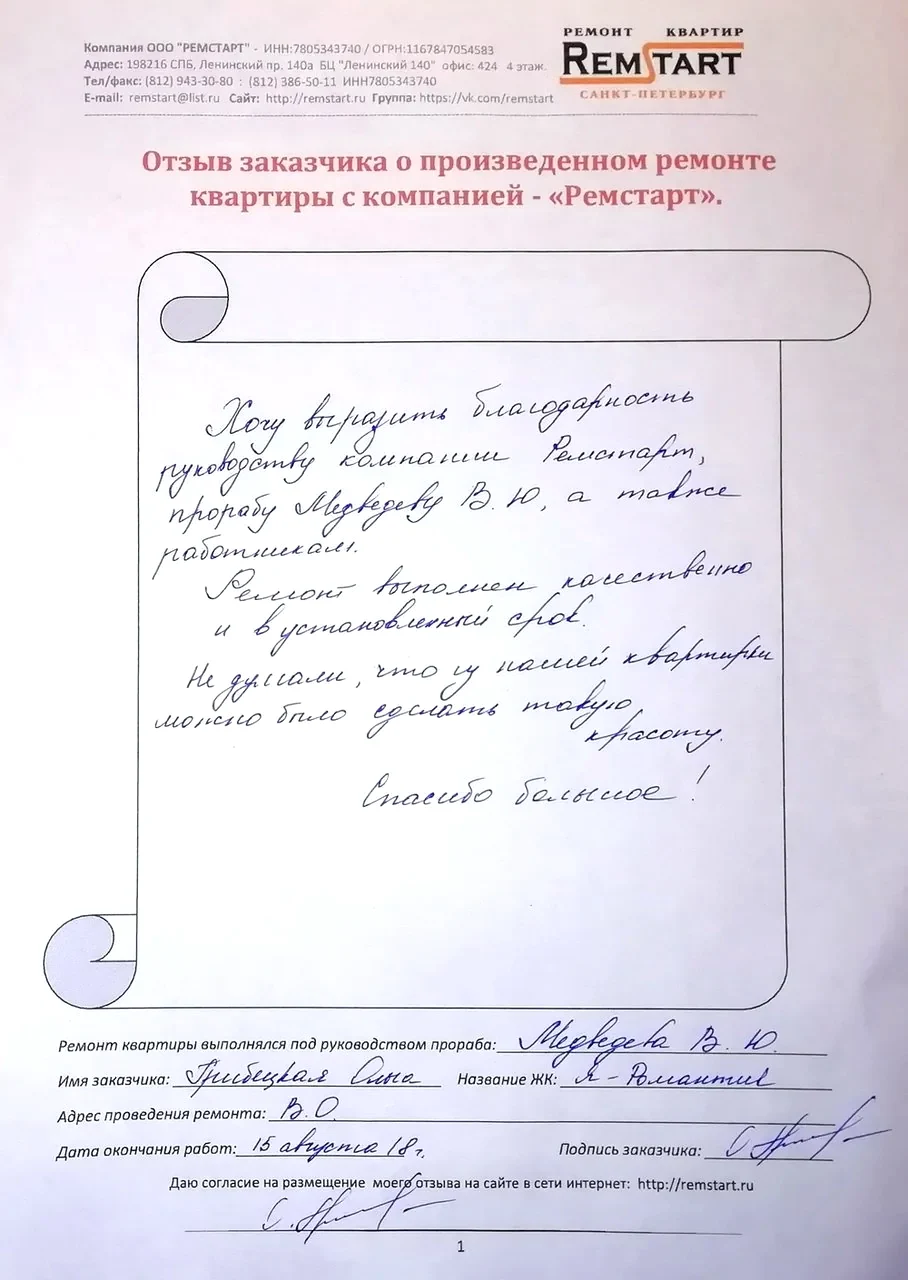 Компания ООО "РЕМСТАРТ" - ИНН:7805343740 / ОГРН:1167847054583
Адрес: 198216 СПБ, Ленинский пр. 140а БЦ "Ленинский 140" офис: 424 4 этаж.
Тел/факс: (812) 943-30-80 : (812) 386-50-11 ИНН7805343740
E-mail: remstart@list.ru Сайт: http://remstart.ru Группа: https://vk.com/remstart
РЕМОНТ КВАРТИР
REMSTART
САНКТ-ПЕТЕРБУРГ
Отзыв заказчика о произведенном ремонте
квартиры с компанией - «Ремстарт».
Хочу выразить благодарность
руководству компании Ремстарт,
прорабу Медведеву В. Ю, а также
работникам.
Ремонт выполнен качественно
и в установленный срок.
Не думали, что из нашей квартирки
можно было сделать такую
красоту.
Спасибо большое!
Ремонт квартиры выполнялся под руководством прораба: Медведева В. Ю.
Имя заказчика: Грибецкая Ольга Название ЖК: Я - Романтик
Адрес проведения ремонта: В.О.
Дата окончания работ: 15 августа 18г. Подпись заказчика:
Даю согласие на размещение моего отзыва на сайте в сети интернет: http://remstart.ru
1